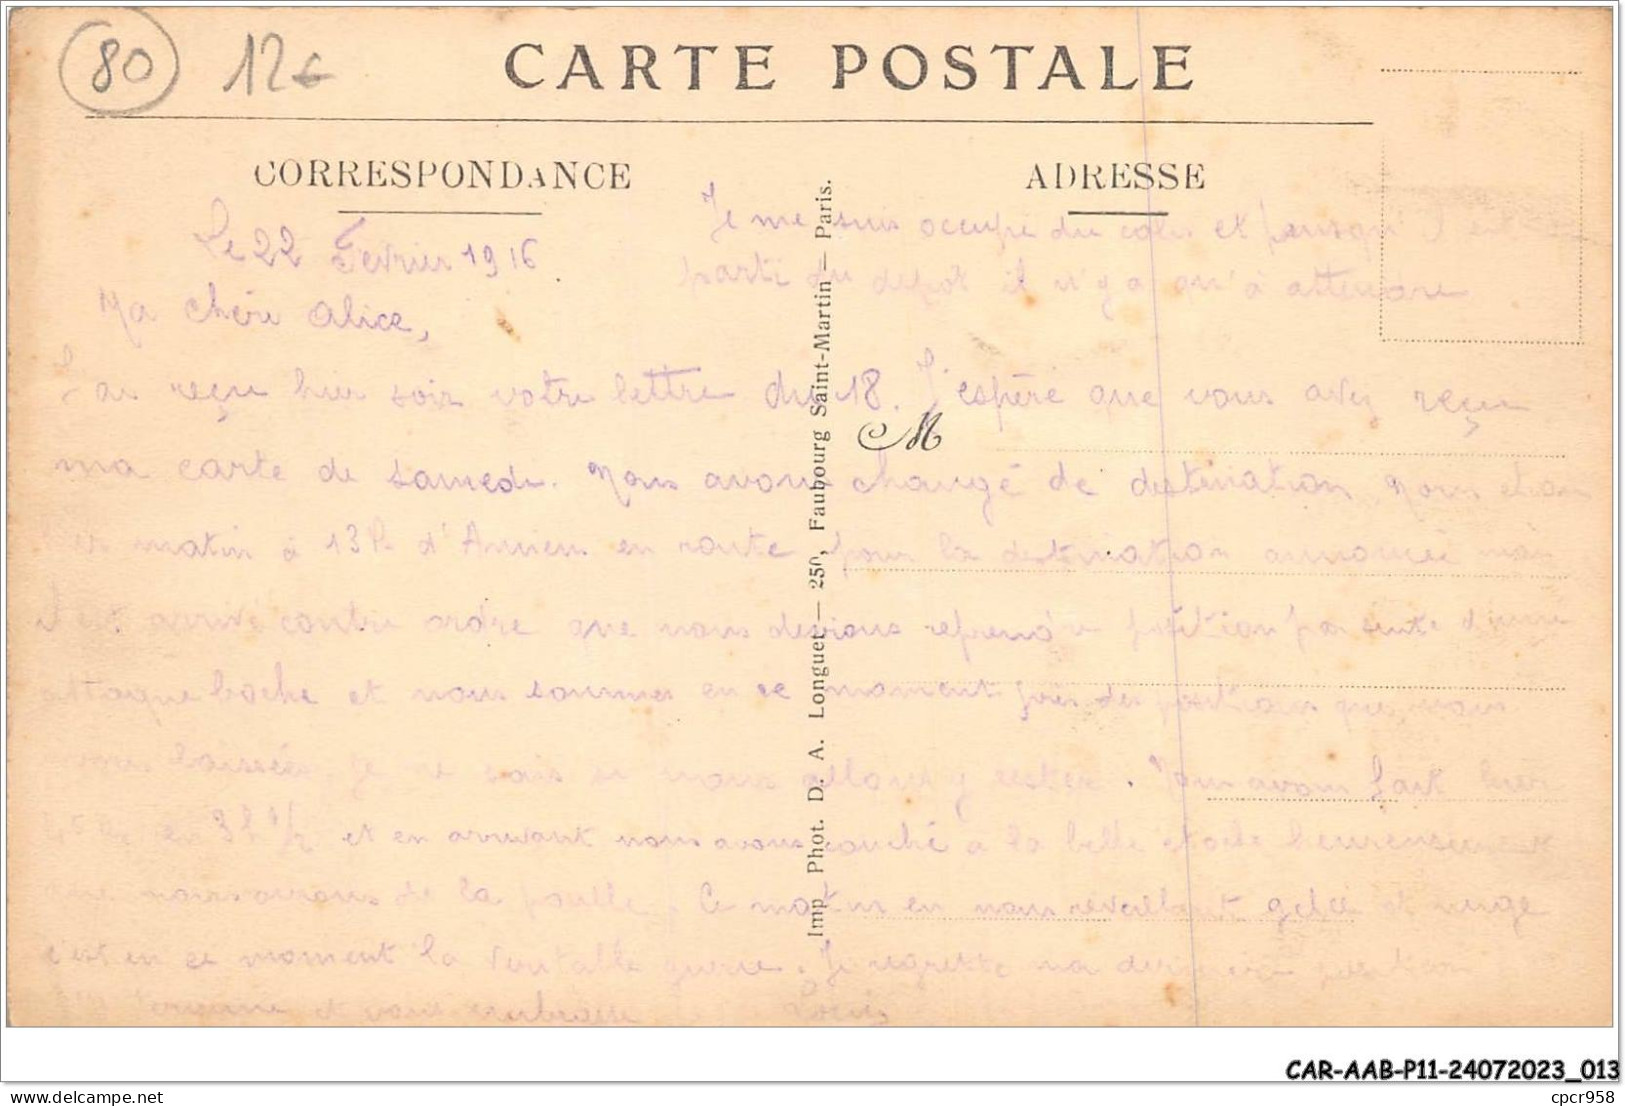 80 12€
CARTE POSTALE
CORRESPONDANCE
ADRESSE
Je me suis occupé du colis et puisqu'il est
parti du dépôt il n'y a qu'à attendre
Le 22 Fevrier 1916
Ma chère Alice,
J'ai reçu hier soir votre lettre du 18. J'espère que vous avez reçu
M
ma carte de samedi. Nous avons changé de destination. Nous étions
hier matin à 13 k d'Amiens en route pour la destination annoncée mais
il est arrivé contre ordre que nous devions reprendre position par suite d'une
attaque boche et nous sommes en ce moment près des positions que nous
avons laissées. Je ne sais si nous allons y rester. Nous avons fait hier
en 3h 1/2 et en arrivant nous avons couché à la belle etoile heureusement
que nous avons de la paille. Ce matin en nous réveillant gelée et neige
c'est en ce moment la veritable guerre. Je regrette ma dernière position
et vous embrasse Louis
Imp. Phot. D. A. Longuet — 250, Faubourg Saint-Martin — Paris.
CAR-AAB-P11-24072023_013
delcampe.net
cpcr958